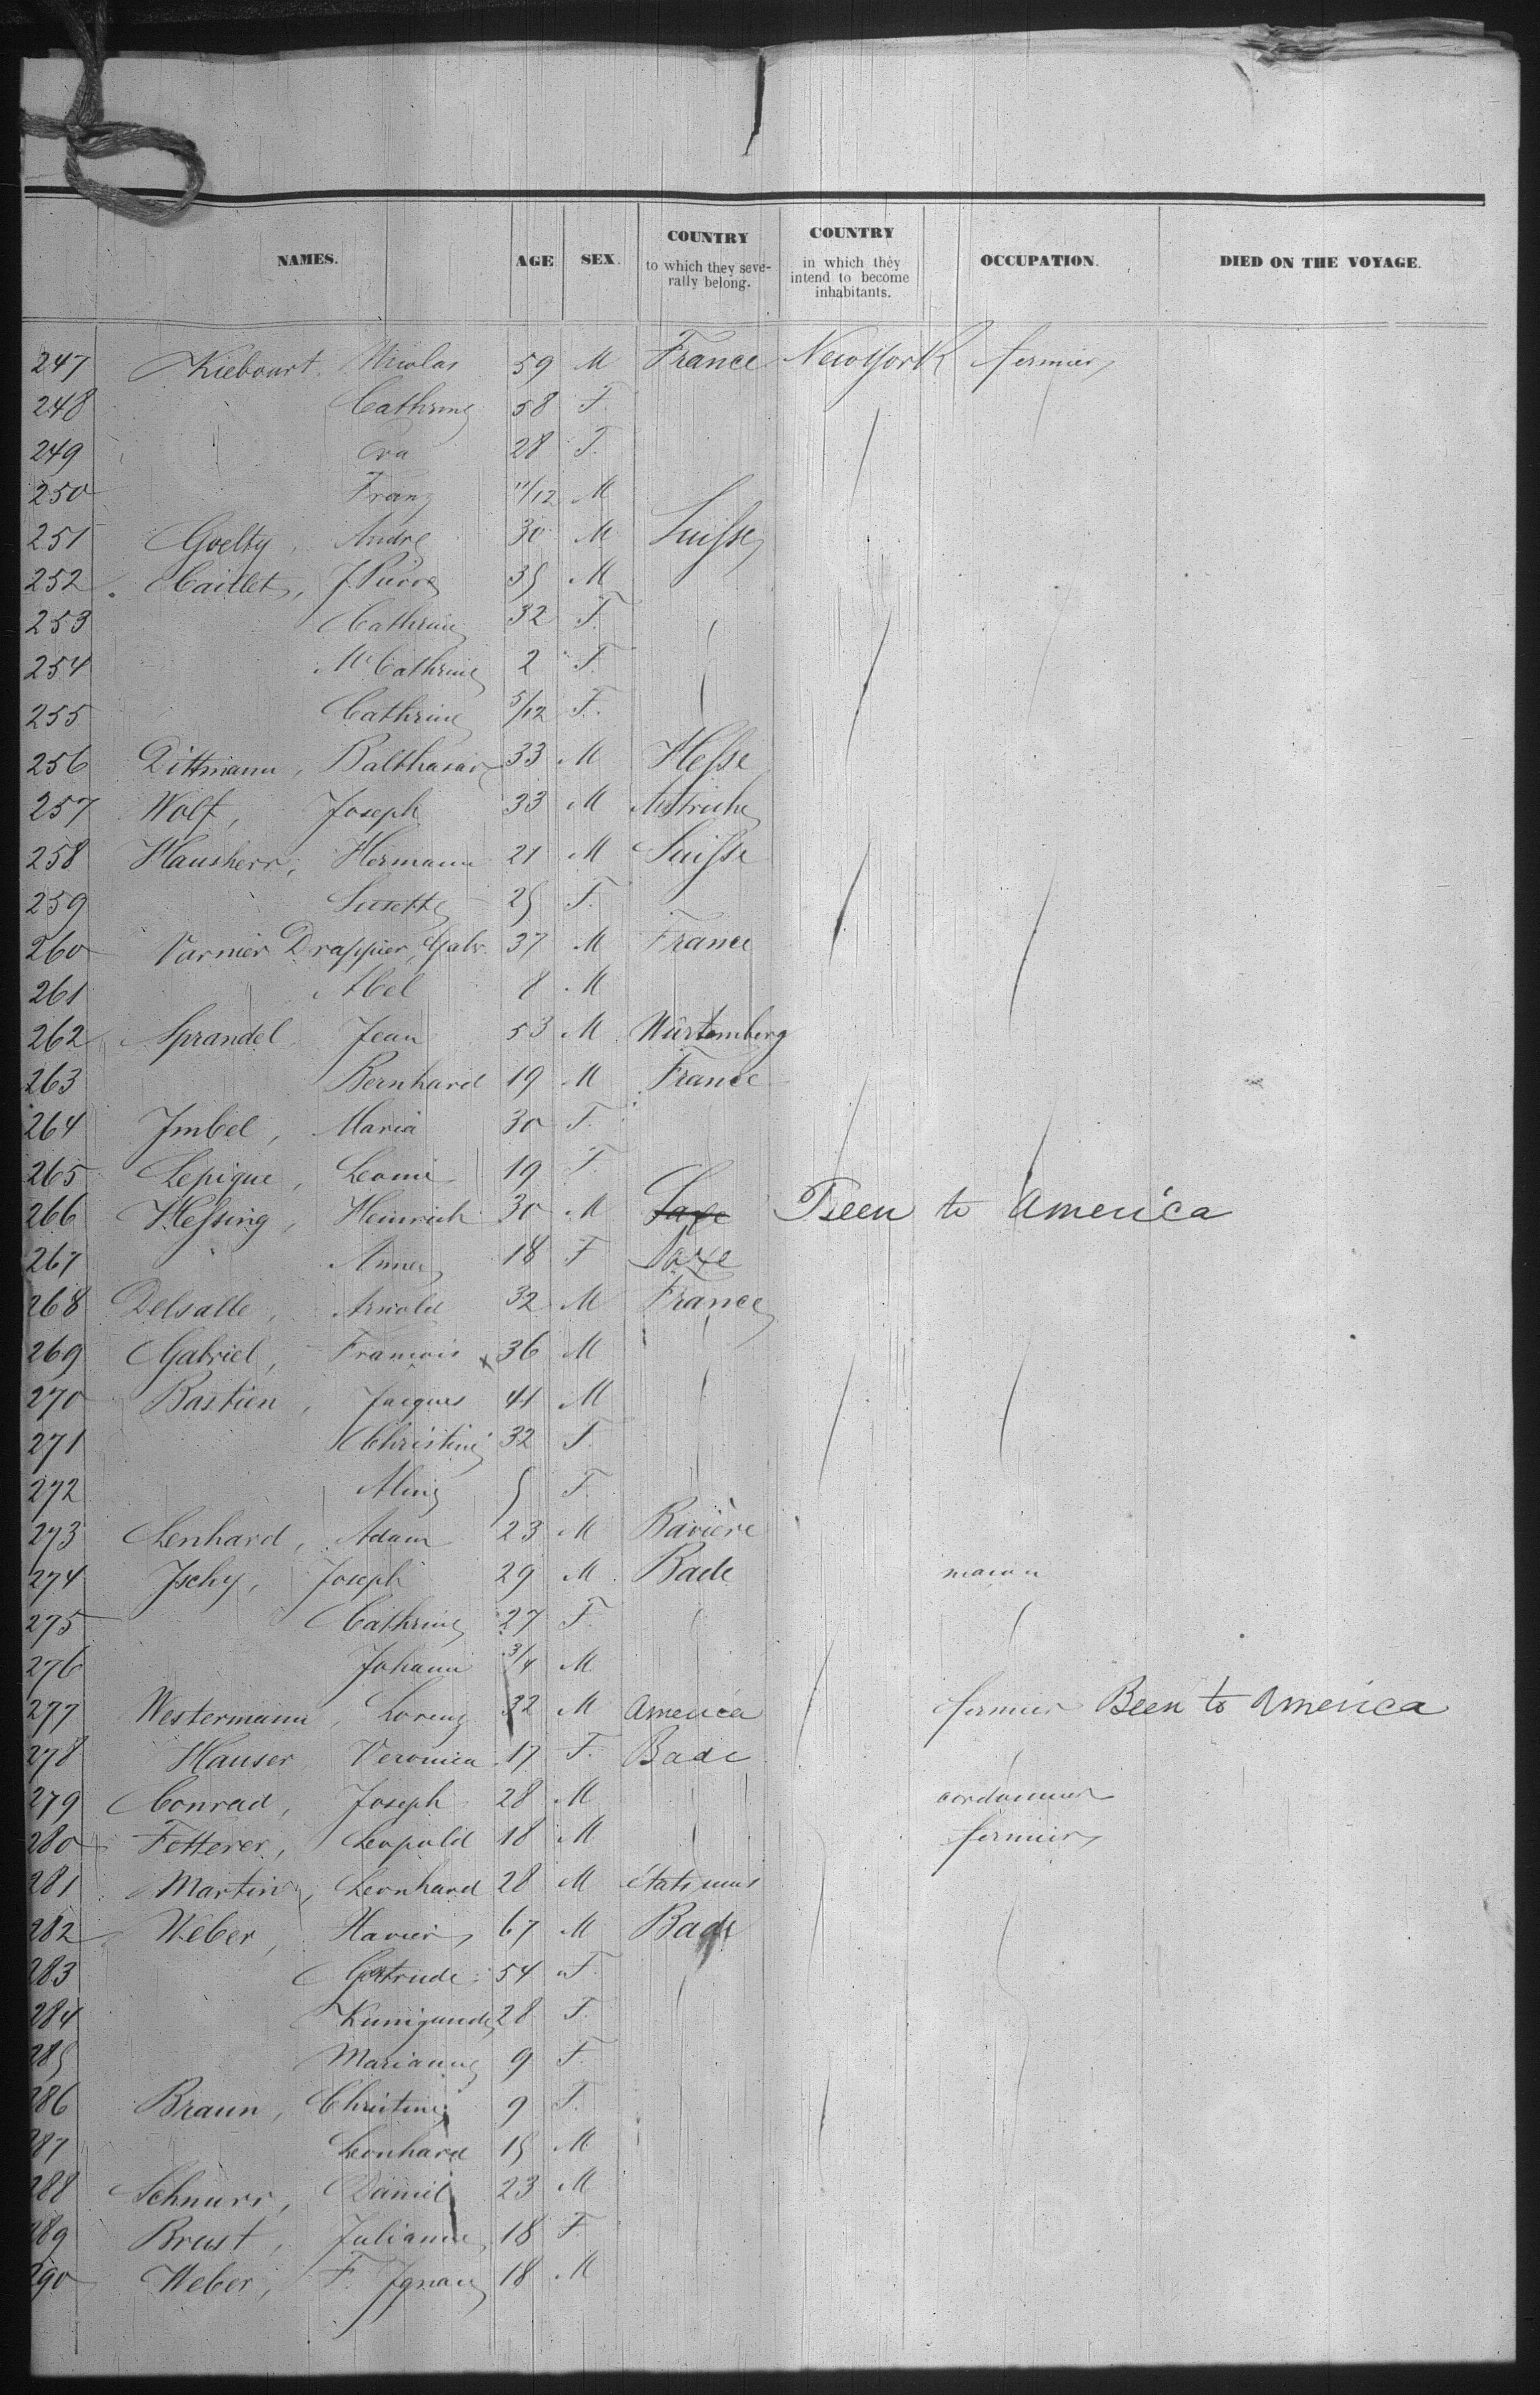 NAMES. AGE SEX. COUNTRY to which they severally belong. COUNTRY in which they intend to become inhabitants. OCCUPATION. DIED ON THE VOYAGE.
247 Kiebourt, Nicolas 59 M France New York fermier
248 Cathrine 58 F.
249 Eva 28 F.
250 Franz 11/12 M
251 Goelty, André 30 M Suisse
252 Caillet, J Pierre 35 M
253 Cathrine 32 F.
254 M Cathrine 2 F.
255 Cathrine 5/12 F.
256 Dittmann, Balthasar 33 M Hesse
257 Wolf, Joseph 33 M Autriche
258 Hausherr, Hermann 21 M Suisse
259 Susette 25 F.
260 Varnier Drappier, Gabr. 37 M France
261 Abel 8 M
262 Sprandel Jean 53 M Würtemberg
263 Bernhard 19 M France
264 Imbel, Maria 30 F.
265 Lepique, Leonie 19 F.
266 Hessing, Heinrich 30 M Saxe Been to America
267 Anna 18 F Saxe
268 Delsalle, Arnold 32 M France
269 Gabriel, Francois x 36 M
270 Bastien, Jacques 41 M
271 Christine 32 F.
272 Aline 5 F.
273 Lenhard, Adam 23 M Bavière
274 Ischy, Joseph 29 M Bade maçon
275 Cathrine 27 F.
276 Johann 3/4 M
277 Westermann, Lorenz 32 M America fermier Been to America
278 Hauser Veronica 17 F. Bade
279 Conrad, Joseph 28 M cordonnier
280 Fetterer, Leopold 18 M fermier
281 Martin, Leonhard 28 M états unis
282 Weber, Xavier 67 M Bade
283 Gertrude 54 F.
284 Kunigunde 28 F.
285 Marianne 9 F.
286 Braun, Christine 9 F.
287 Leonhard 15 M
288 Schnurr, Daniel 23 M
289 Brust, Julianne 18 F
290 Weber, F. Ignaz 18 M